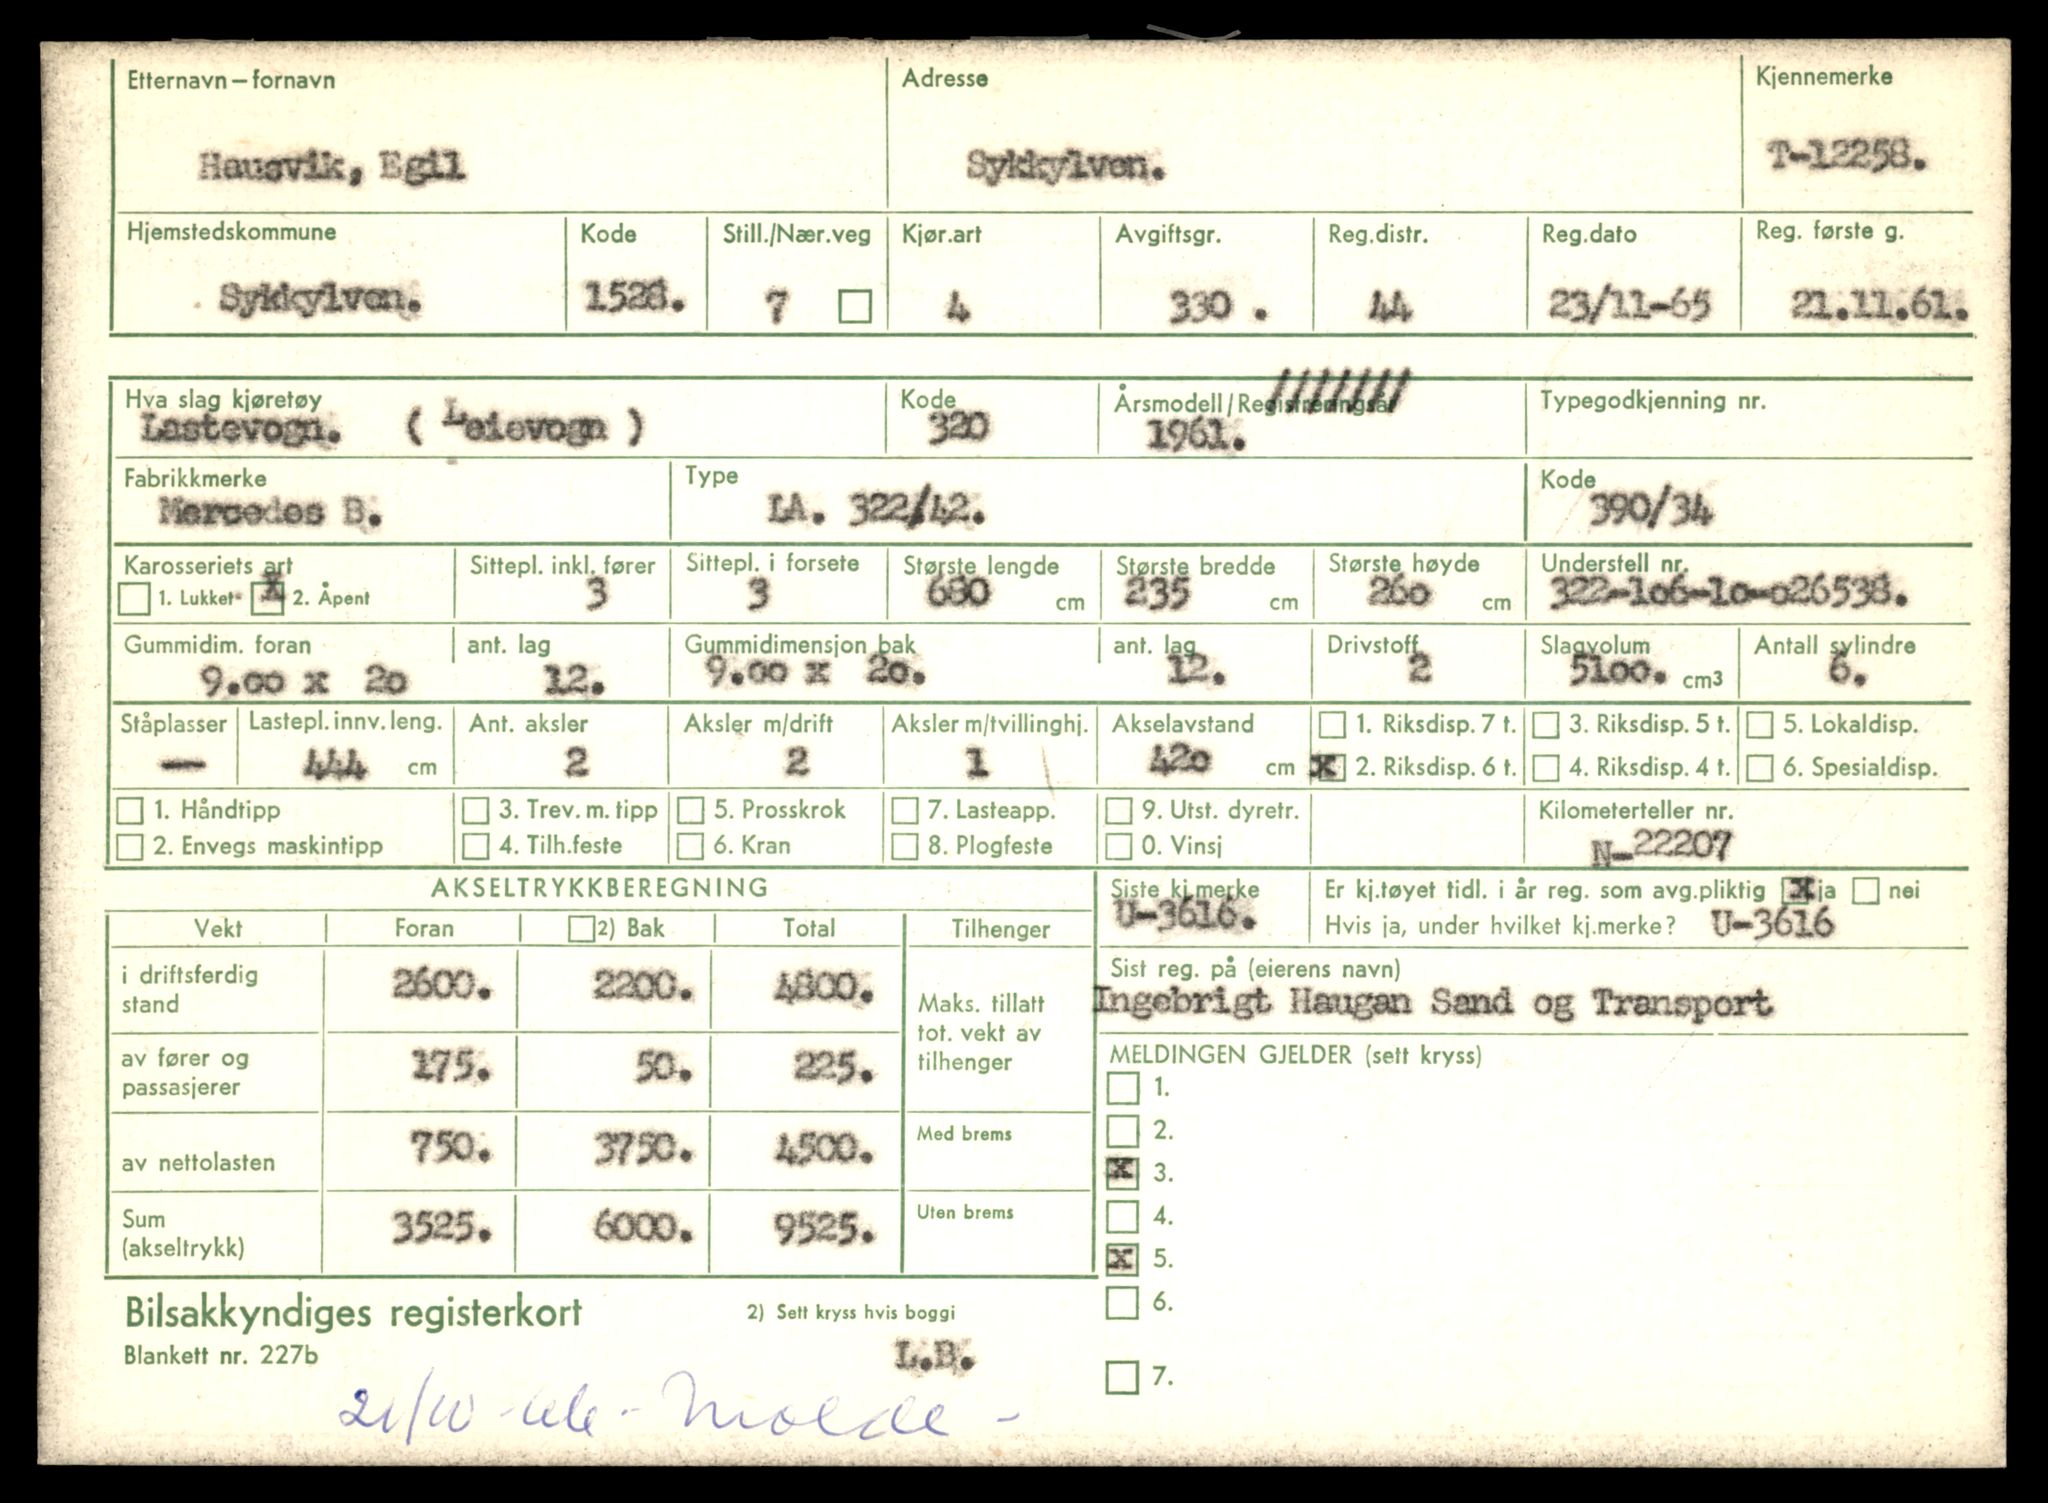 Etternavn – fornavn Adresse Kjennemerke
Hausvik, Egil Sykkylven. T-12258.
Hjemstedskommune Kode Still./Nær.veg Kjør.art Avgiftsgr. Reg.distr. Reg.dato Reg. første g.
Sykkylven. 1528. 7 4 330 . 44 23/11-65 21.11.61.
Hva slag kjøretøy Kode Årsmodell/Registreringsår Typegodkjenning nr.
Lastevogn. ( Leievogn ) 320 1961.
Fabrikkmerke Type Kode
Mercedes B. LA. 322/42. 390/34
Karosseriets art Sittepl. inkl. fører Sittepl. i forsete Største lengde Største bredde Største høyde Understell nr.
1. Lukket X 2. Åpent 3 3 680 cm 235 cm 26o cm 322-1o6-1o-o26538.
Gummidim. foran ant. lag Gummidimensjon bak ant. lag Drivstoff Slagvolum Antall sylindre
9.oo x 2o 12. 9.oo x 2o. 12. 2 51oo. cm3 6.
Ståplasser Lastepl. innv. leng. Ant. aksler Aksler m/drift Aksler m/tvillinghj. Akselavstand 1. Riksdisp. 7 t. 3. Riksdisp. 5 t. 5. Lokaldisp.
— 444 cm 2 2 1 42o cm x 2. Riksdisp. 6 t. 4. Riksdisp. 4 t. 6. Spesialdisp.
1. Håndtipp 3. Trev. m. tipp 5. Prosskrok 7. Lasteapp. 9. Utst. dyretr. Kilometerteller nr.
2. Envegs maskintipp 4. Tilh.feste 6. Kran 8. Plogfeste 0. Vinsj N-22207
AKSELTRYKKBEREGNING Siste kj.merke Er kj.tøyet tidl. i år reg. som avg.pliktig x ja nei
U-3616. Hvis ja, under hvilket kj.merke? U-3616
Vekt Foran 2) Bak Total Tilhenger
i driftsferdig stand 2600. 2200. 4800. Maks. tillatt tot. vekt av tilhenger
Sist reg. på (eierens navn)
Ingebrigt Haugan Sand og Transport
av fører og passasjerer 175. 50. 225.
MELDINGEN GJELDER (sett kryss)
1.
2.
av nettolasten 750. 3750. 4500. Med brems
x 3.
4.
Sum (akseltrykk) 3525. 6000. 9525. Uten brems
x 5.
6.
Bilsakkyndiges registerkort 2) Sett kryss hvis boggi
Blankett nr. 227b L.B.
7.
Molde -